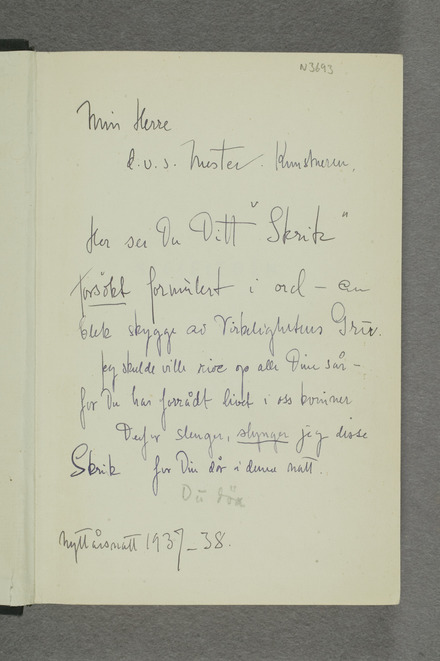 N3693
Min Herre
d.v.s. Mester. Kunstneren,
Her ser Du Ditt "Skrik"
forsökt formulert i ord – en
blek skygge av Virkelighetens Grin.
Jeg skulde ville rive op alle Dine sår –
for Du har forrådt livet i oss kvinner
Derfor slenger, slynger jeg disse
Skrik for Din dör i denne natt.
Du
Nyttårsnatt 1937–38.